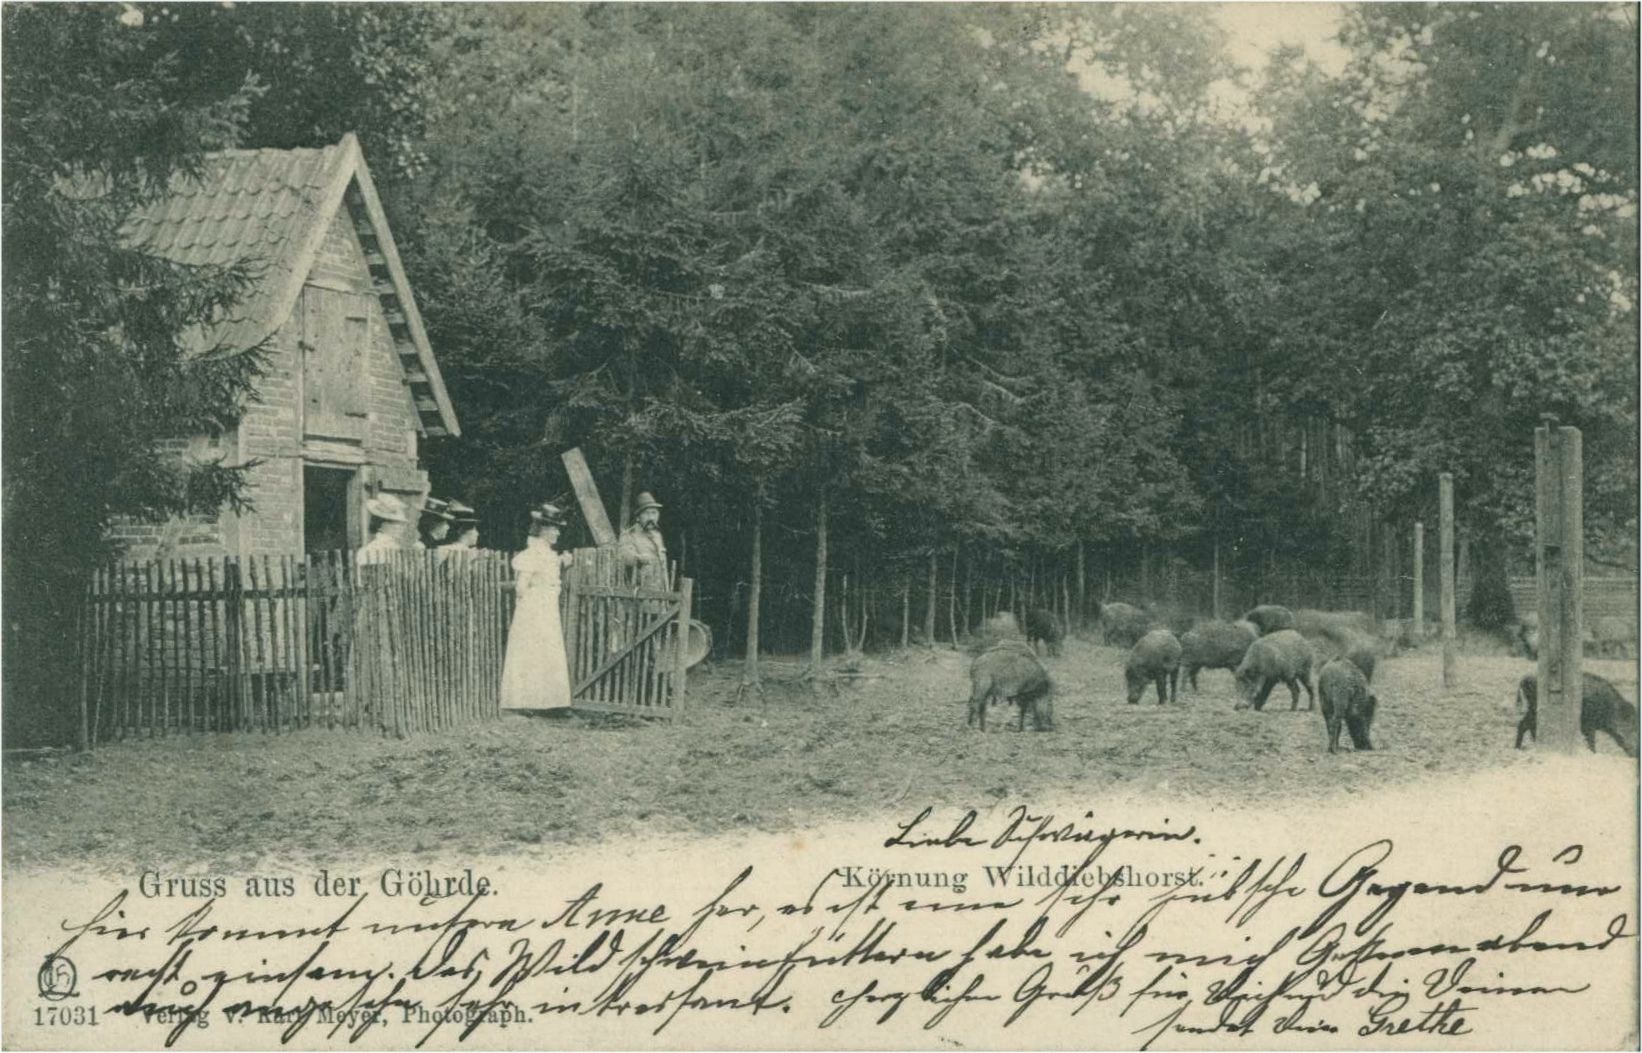 Liebe Schwägerin.
Gruss aus der Göhrde.
Körnung Wilddiebshorst.
hier kommt unsere Anne her, es ist eine sehr hübsche Gegend nur
recht einsam. Das Wildschweinfüttern habe ich mich Gestern abend
auch angesehn sehr interessant. herzlichen Gruß für Dich und die Deinen
sendet Deine Grethe
17031 Verlag v. Karl Meyer, Photograph.